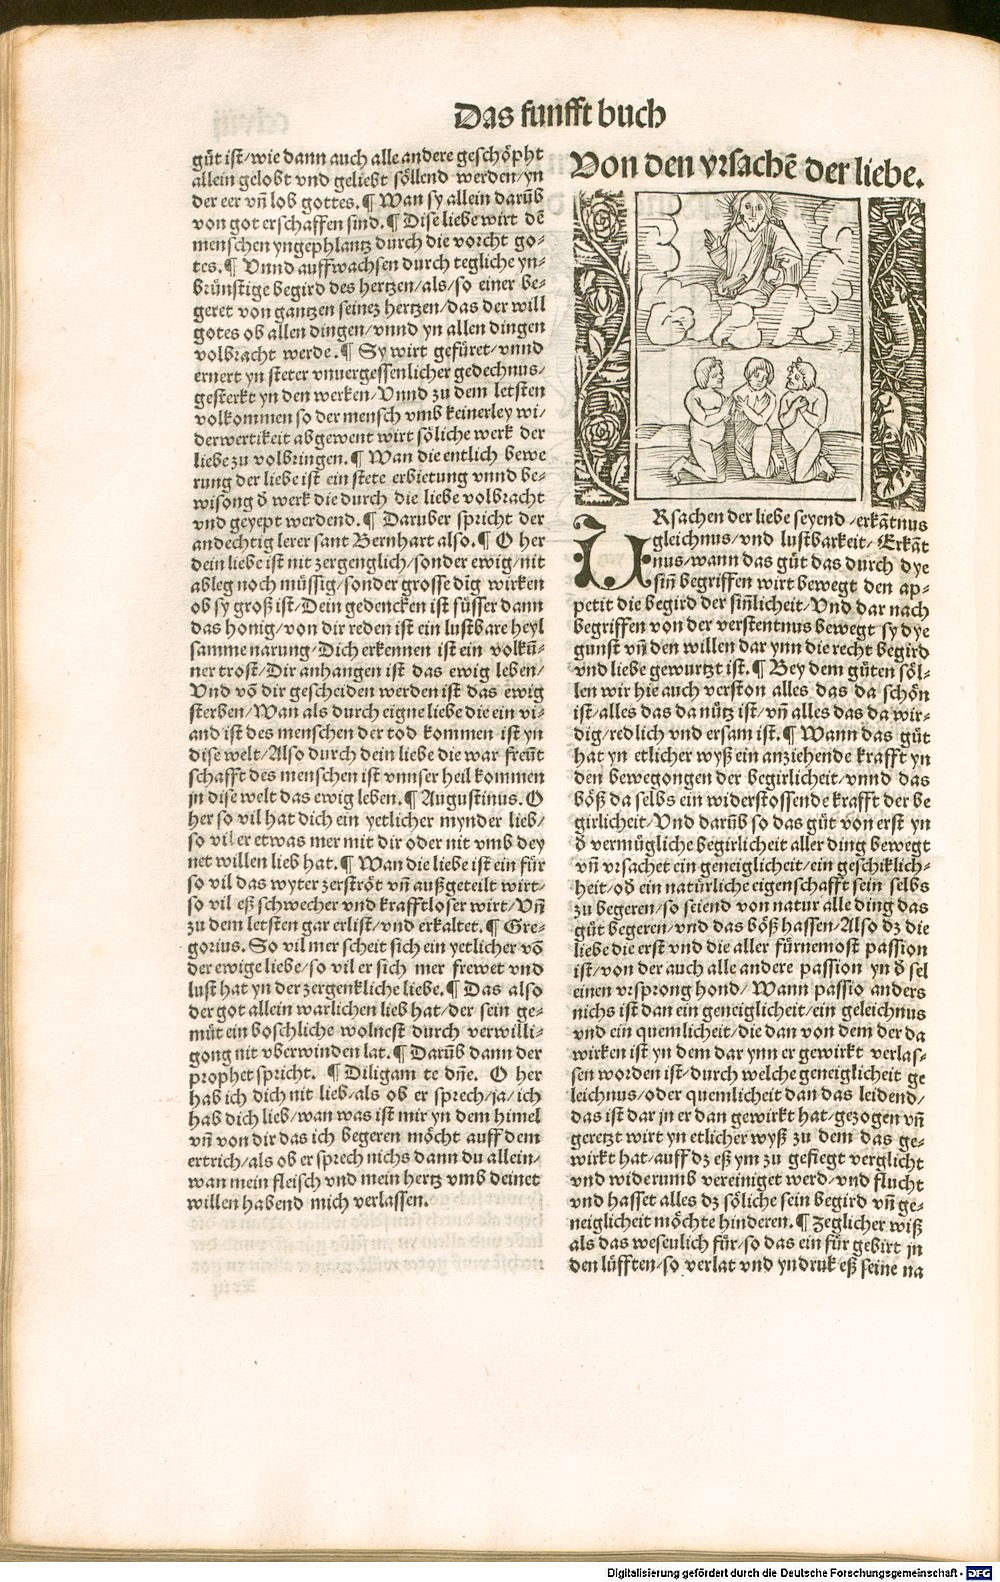 Das funfft buch
güt ist/wie dann auch alle andere geschöpht
allein gelobt vnd geliebt söllend werden/yn
der eer vñ lob gottes.¶ Wan sy allein darūb
von got erschaffen sind.¶ Dise liebe wirt dē
menschen yngephlantz durch die vorcht go⸗
tes.¶ Vnnd auffwachsen durch tegliche yn⸗
brünstige begird des hertzen/als/so einer be⸗
geret von gantzen seinez hertzen/das der will
gotes ob allen dingen/vnnd yn allen dingen
volbracht werde.¶ Sy wirt gefüret/vnnd
ernert yn steter vnuergessenlicher gedechnus/
gesterkt yn den werken/Vnnd zu dem letsten
volkommen so der mensch vmb keinerley wi/
derwertikeit abgewent wirt söliche werk der
liebe zu volbringen.¶ Wan die entlich bewe
rung der liebe ist ein stete erbietung vnnd be⸗
wisong ð werk die durch die liebe volbracht
vnd geyept werdend.¶ Daruber spricht der
andechtig lerer sant Bernhart also.¶ O her
dein liebe ist nit zergenglich/sonder ewig/nit
ableg noch müssig/sonder grosse dīg wirken
ob sy groß ist/Dein gedencken ist süsser dann
das honig/von dir reden ist ein lustbare heyl
samme narung/Dich erkennen ist ein volkū⸗
ner trost/Dir anhangen ist das ewig leben/
Vnd vō dir gescheiden werden ist das ewig
sterben/Wan als durch eigne liebe die ein vi⸗
and ist des menschen der tod kommen ist yn
dise welt/Also durch dein liebe die war freūt
schafft des menschen ist vnnser heil kommen
jn dise welt das ewig leben.¶ Augustinus. O
her so vil hat dich ein yetlicher mynder lieb/
so vil er etwas mer mit dir oder nit vmb dey
net willen lieb hat.¶ Wan die liebe ist ein für
so vil das wyter zerströt vñ außgeteilt wirt/
so vil eß schwecher vnd krafftloser wirt/Vñ
zu dem letsten gar erlist/vnd erkaltet.¶ Gre⸗
gorius. So vil mer scheit sich ein yetlicher vō
der ewige liebe/so vil er sich mer frewet vnd
lust hat yn der zergenkliche liebe.¶ Das also
der got allein warlichen lieb hat/der sein ge⸗
müt ein boschliche wolnest durch verwilli⸗
gong nit vberwinden lat.¶ Darūb dann der
prophet spricht. ¶ Diligam te dñe. O her
hab ich dich nit lieb/als ob er sprech/ja/ich
hab dich lieb/wan was ist mir yn dem himel
vñ von dir das ich begeren möcht auff dem
ertrich/als ob er sprech nichs dann du allein/
wan mein fleisch vnd mein hertz vmb deinet
willen habend mich verlassen.
Von den vrsachē der liebe.
URsachen der liebe seyend/erkātnus
gleichnus/vnd lustbarkeit/Erkāt
nus/wann das güt das durch dye
sin̄ begriffen wirt bewegt den ap⸗
petit die begird der sin̄licheit/Vnd dar nach
begriffen von der verstentnus bewegt sy dye
gunst vñ den willen dar ynn die recht begird
vnd liebe gewurtzt ist.¶ Bey dem güten söl⸗
len wir hie auch verston alles das da schön
ist/alles das da nütz ist/vñ alles das da wir⸗
dig/redlich vnd ersam ist.¶ Wann das güt
hat yn etlicher wyß ein anziehende krafft yn
den bewegongen der begirlicheit/vnnd das
böß da selbs ein widerstossende krafft der be
girlicheit/Vnd darūb so das güt von erst yn
ð vermügliche begirlicheit aller ding bewegt
vñ vrsachet ein geneiglicheit/ein geschiklich⸗
heit/oð ein natürliche eigenschafft sein selbs
zu begeren/so seiend von natur alle ding das
güt begeren/vnd das böß hassen/Also dz die
liebe die erst vnd die aller fürnemost passion
ist/von der auch alle andere passion yn ð sel
einen vrsprong hond/Wann passio anders
nichs ist dan ein geneiglicheit/ein geleichnus
vnd ein quemlicheit/die dan von dem der da
wirken ist yn dem dar ynn er gewirkt verlas⸗
sen worden ist/durch welche geneiglicheit ge
leichnus/oder quemlicheit dan das leidend/
das ist dar jn er dan gewirkt hat/gezogen vñ
geretzt wirt yn etlicher wyß zu dem das ge⸗
wirkt hat/auff dz eß ym zu gefiegt verglicht
vnd widerumb vereiniget werd/vnd flucht
vnd hasset alles dz söliche sein begird vñ ge⸗
neiglicheit möchte hinderen.¶ Zeglicher wiß
als das wesenlich für/so das ein für gebirt jn
den lüfften/so verlat vnd yndruk eß seine na
Digitalisierung gefördert durch die Deutsche Forschungsgemeinschaft - DFG